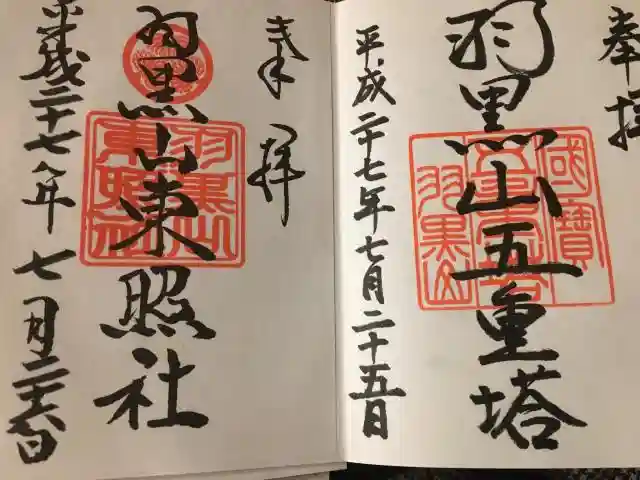 奉拝
國寶
羽黒山五重塔
五重塔
羽黒山
平成二十七年七月二十五日
奉拝
羽黒山東照社
羽黒山
東照社
平成二十七年七月二十六日